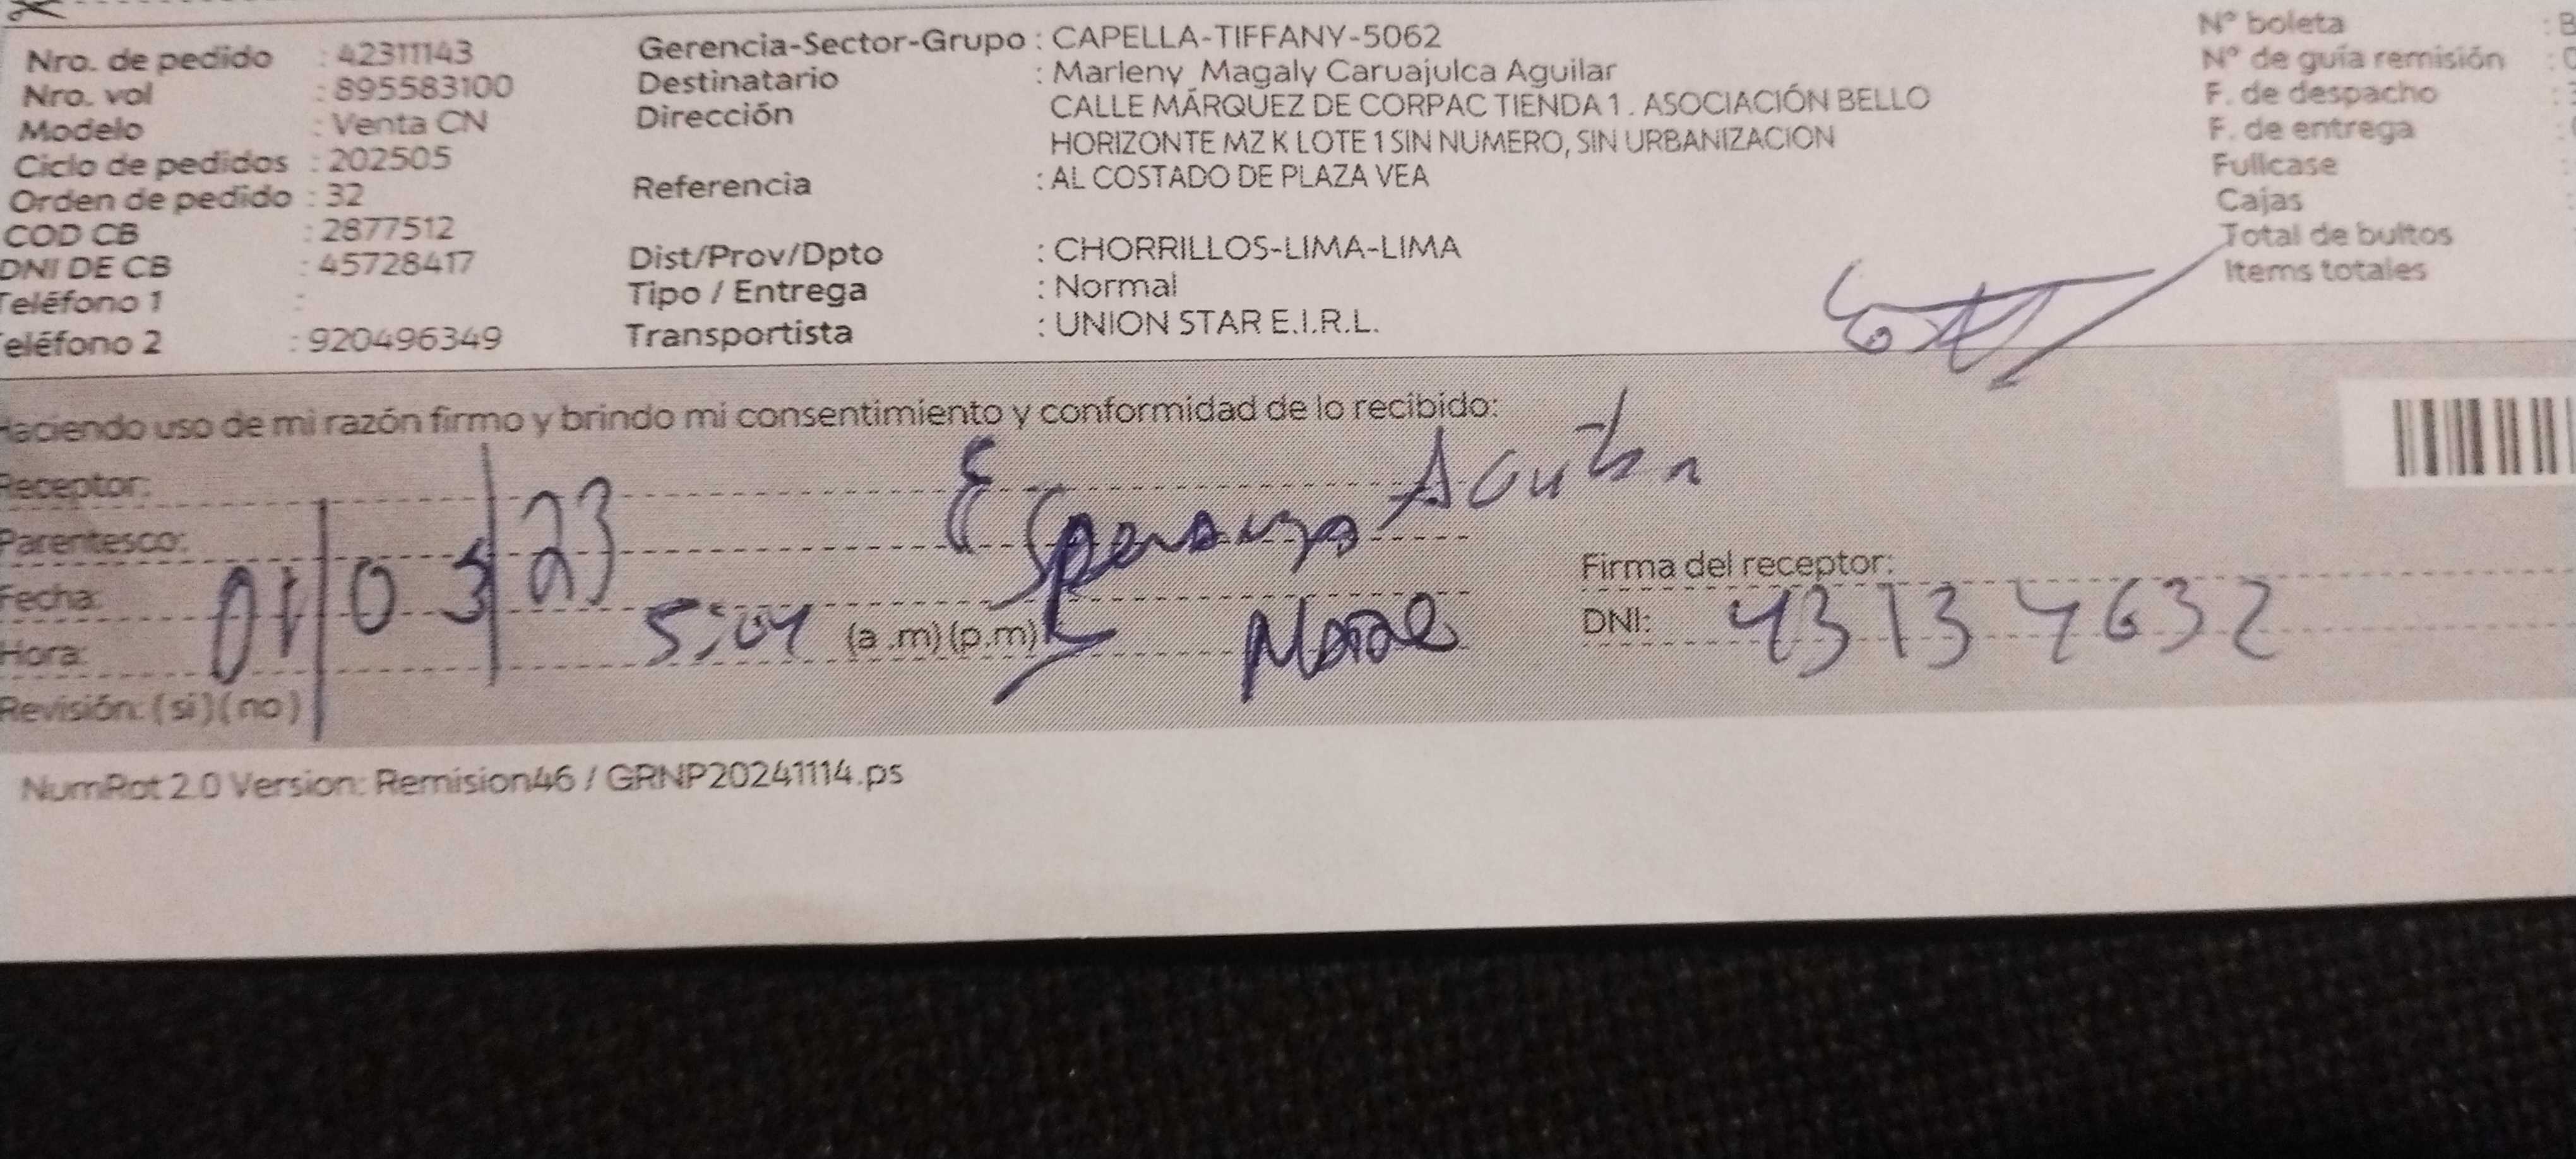 Nro. de pedido : 42311143
Nro. vol : 895583100
Modelo : Venta CN
Ciclo de pedidos : 202505
Orden de pedido : 32
COD CB : 2877512
DNI DE CB : 45728417
Teléfono 1 :
eléfono 2 : 920496349
Gerencia-Sector-Grupo : CAPELLA-TIFFANY-5062
Destinatario : Marleny Magaly Caruajulca Aguilar
Dirección CALLE MÁRQUEZ DE CORPAC TIENDA 1 . ASOCIACIÓN BELLO
HORIZONTE MZ K LOTE 1 SIN NUMERO, SIN URBANIZACION
Referencia : AL COSTADO DE PLAZA VEA
Dist/Prov/Dpto : CHORRILLOS-LIMA-LIMA
Tipo / Entrega : Normal
Transportista : UNION STAR E.I.R.L.
N° boleta : B
N° de guía remisión :
F. de despacho :
F. de entrega :
Fullcase
Cajas
Total de bultos
Items totales
Haciendo uso de mi razón firmo y brindo mi consentimiento y conformidad de lo recibido:
Receptor:
Parentesco:
Fecha: 01/03/23
Hora: 5:04 (a .m) (p.m)
Revisión: (si) (no)
Esperanza
Firma del receptor:
DNI: 43134632
NumRot 2.0 Version: Remision46 / GRNP20241114.ps